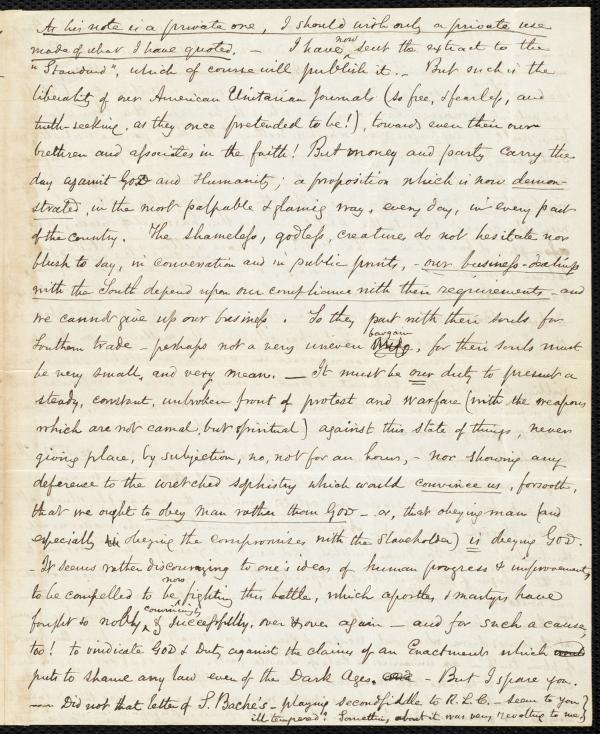 As his note is a private one, I should wish only a private use
made of what I have quoted. — I have now sent the extract to the
"Standard", which of course will publish it. — But such is the
liberality of our American Unitarian Journals (so free, & fearless, and
truth-seeking, as they once pretended to be!), towards even their own
brethren and associates in the faith! But money and party carry the
day against God and Humanity; a proposition which is now demon-
strated, in the most palpable & glaring way, every day, in every part
of the Country. The shameless, godless, creatures do not hesitate nor
blush to say, in conversation and in public prints, — our business-dealings
with the South depend upon our compliance with their requirements — and
we cannot give up our business. So they part with their souls for
Southern trade — perhaps not a very uneven bargain, for their souls must
be very small, and very mean. — It must be our duty to present a
steady, constant, unbroken front of protest and warfare (with the weapons
which are not carnal, but spiritual) against this state of things, never
giving place, by subjection, no, not for an hour, — nor showing any
deference to the wretched sophistry which would convince us, forsooth,
that we ought to obey Man rather than God — or, that obeying man (and
especially obeying the compromises with the Slaveholder) is obeying God.
— It seems rather discouraging to one's ideas of human progress & improvement,
to be compelled to be now fighting this battle, which apostles & martyrs have
fought so nobly, & convincingly & successfully, over & over again — and for such a cause,
too! to vindicate God & Duty against the claims of an Enactment which
puts to shame any law even of the Dark Ages. — But I spare you.
— Did not that letter of S. Bache's — playing second fiddle to R.L.C. — seem to you
ill tempered? Something about it was very revolting to me.